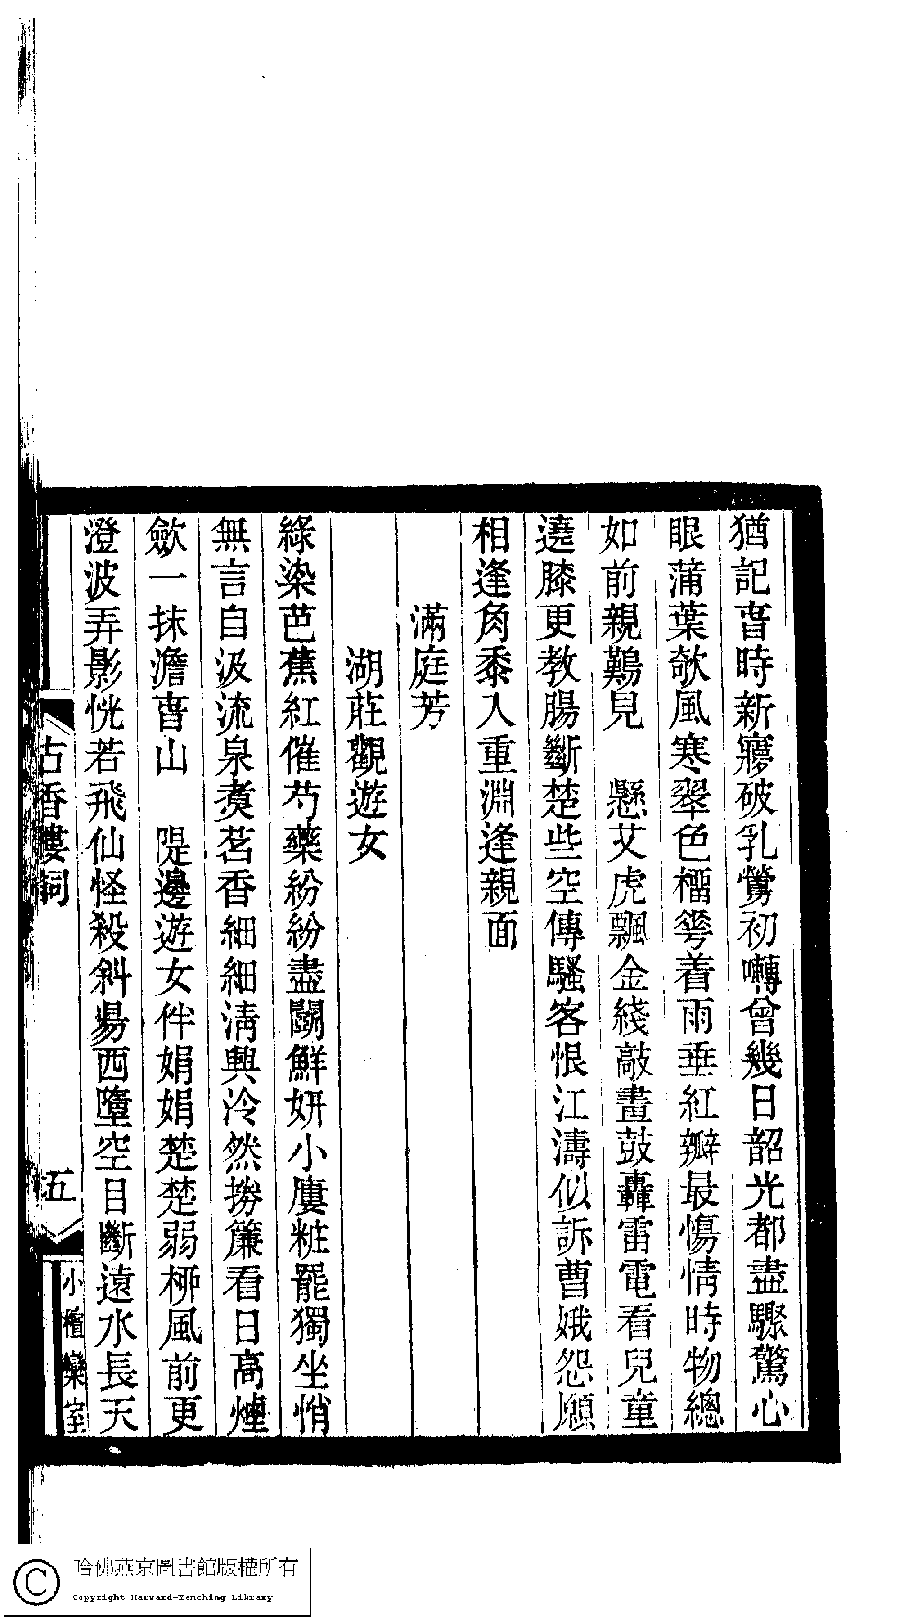 猶記旾時新寢破乳鶯初囀曾幾日韶光都盡驟驚心
眼蒲葉欹風寒翠色榴㠇着雨垂紅瓣最傷情時物總
如前親難見　懸艾虎飄金綫敲畫鼓轟雷電看兒童
遶膝更教腸斷楚些空傳騷客恨江濤似訴曹娥怨願
相逢角黍入重淵逢親面
滿庭芳
湖莊觀遊女
綠染芭蕉紅催芍藥紛紛盡鬭鮮妍小廔粧罷獨坐悄
無言自汲流泉煑茗香細細淸興泠然撈簾看日高煙
歛一抹澹旾山　隄邊遊女伴娟娟楚楚弱柳風前更
澄波弄影恍若飛仙怪殺斜陽西墮空目斷遠水長天
古香樓詞
五
小檀欒室
哈佛燕京圖書館版權所有
Copyright Harvard-Yenching Library